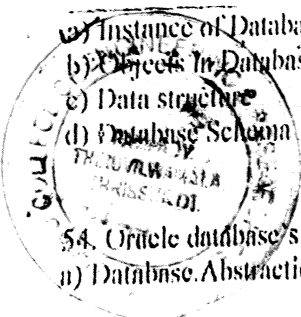 a) Instance of Databa
b) Objects in Databas
c) Data structure
d) Database Schema
54. Oracle database's
a) Database Abstracti